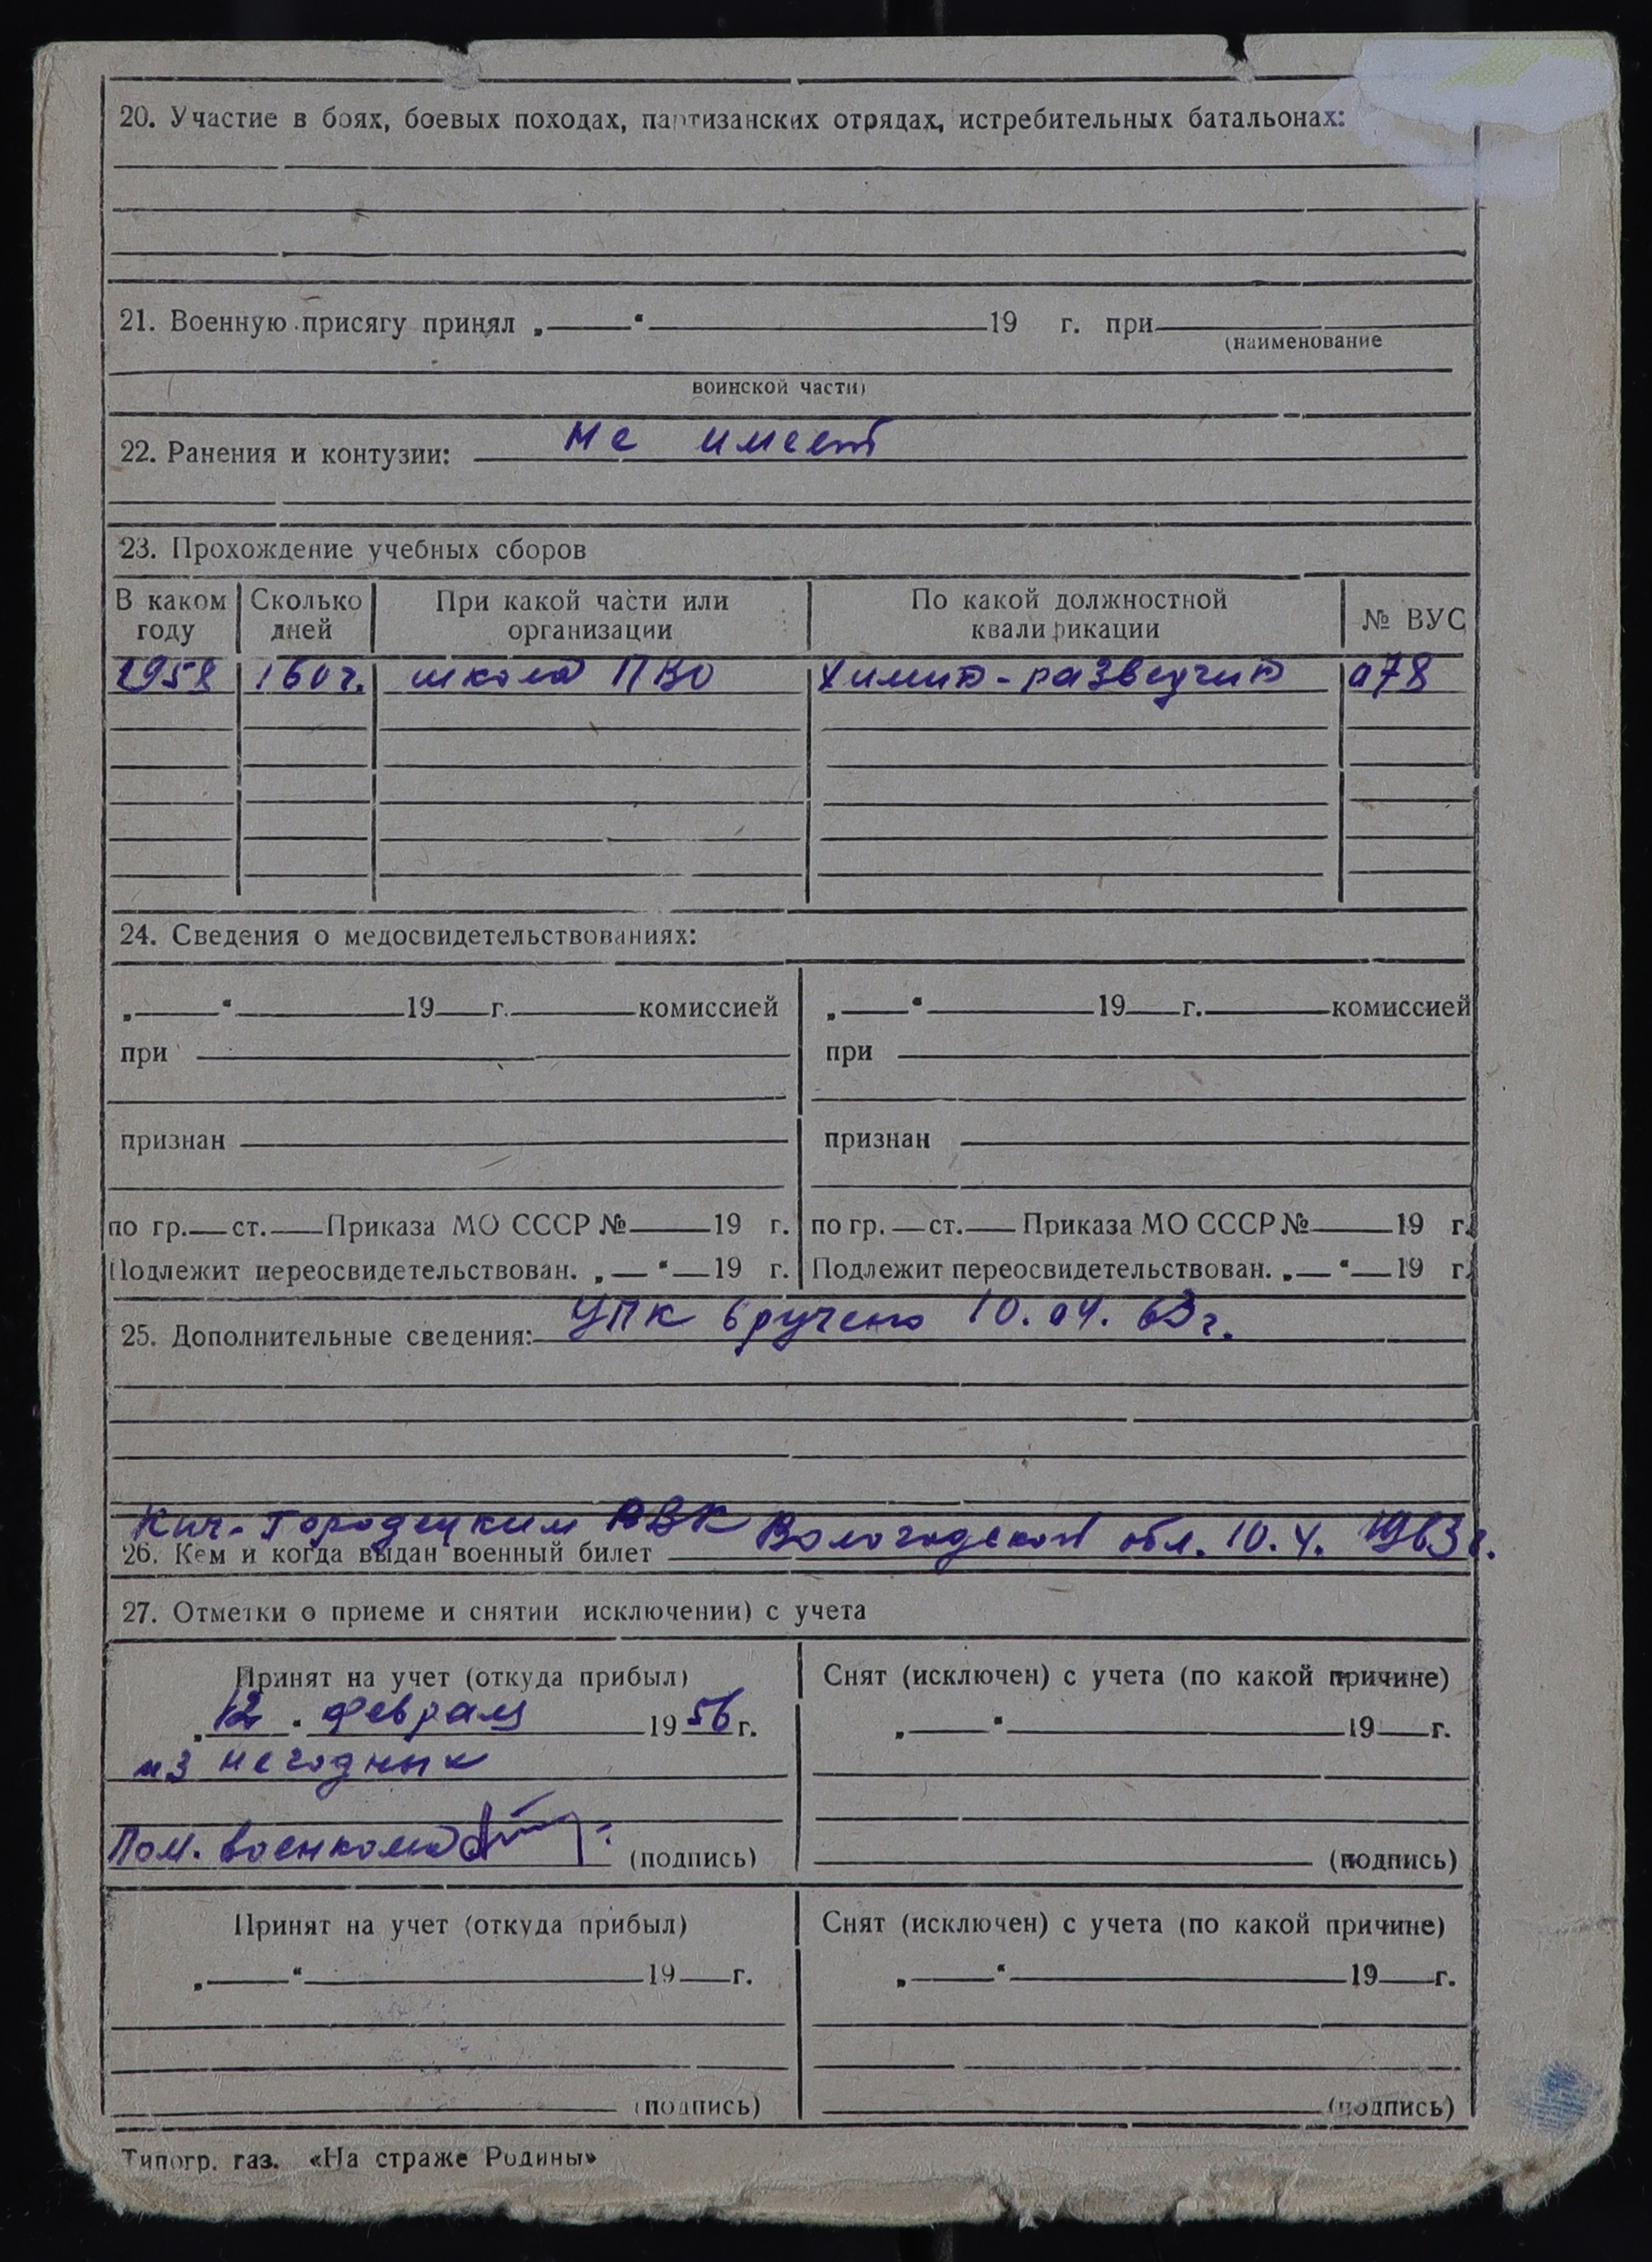 20. Участие в боях, боевых походах, партизанских отрядах, истребительных батальонах:
21. Военную присягу принял „ “ 19 г. при
(наименование
воинской части)
22. Ранения и контузии: не имеет
23. Прохождение учебных сборов
В каком году Сколько дней При какой части или организации По какой должностной квалификации № ВУС
1958 160 ч. школа ПВО Химик-разведчик 078
24. Сведения о медосвидетельствованиях:
„ “ 19 г. комиссией „ “ 19 г. комиссией
при при
признан признан
по гр. ст. Приказа МО СССР № 19 г. по гр. ст. Приказа МО СССР № 19 г.
Подлежит переосвидетельствован. „ “ 19 г. Подлежит переосвидетельствован. „ “ 19 г.
25. Дополнительные сведения: УПК вручено 10.04.63 г.
Кич-Городецким РВК Вологодской обл. 10.4.1963 г.
26. Кем и когда выдан военный билет
27. Отметки о приеме и снятии исключении) с учета
Принят на учет (откуда прибыл) Снят (исключен) с учета (по какой причине)
„12“ февраля 1956 г. „ “ 19 г.
из негодных
Пом. военкома (подпись) (подпись)
Принят на учет (откуда прибыл) Снят (исключен) с учета (по какой причине)
„ “ 19 г. „ “ 19 г.
(подпись) (подпись)
Типогр. газ. «На страже Родины»